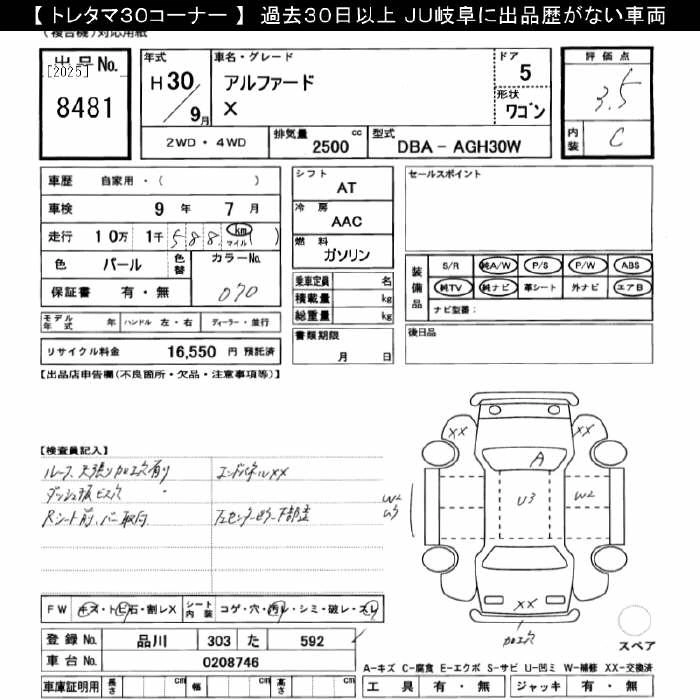 【 トレタマ30コーナー 】 過去30日以上 JU岐阜に出品歴がない車両
(複合機)対応用紙
出品No.
[2025]
8481
年式
H 30/9月
車名・グレード
アルファード
X
ドア
5
形状
ワゴン
評価点
3.5
内装
C
2WD・4WD
排気量 2500 cc
型式 DBA－AGH30W
車歴 自家用・( )
車検 9 年 7 月
走行 10万 1千 5 8 8 km マイル ( )
色 パール 色替 カラーNo. 070
保証書 有・無
シフト AT
冷房 AAC
燃料 ガソリン
乗車定員 名
積載量 kg
総重量 kg
セールスポイント
装備品
S/R 純A/W P/S P/W ABS
純TV 純ナビ 革シート 外ナビ エアB
ナビ型番:
モデル年式 年 ハンドル 左・右 ディーラー・並行
書類期限 月 日
後日品
リサイクル料金 16,550 円 預託済
【出品店申告欄(不良箇所・欠品・注意事項等)】
【検査員記入】
ルーフ、天張り加工穴有り エンドパネルXX
ダッシュ板ビス穴
Rシート前、バー取付
XX XX
A
U3
W2
W2
U3
XX
加工穴
スペア
FW キズ・トビ石・割レX シート内装 コゲ・穴・汚レ・シミ・破レ・スレ
登録 No. 品川 303 た 592
車台 No. 0208746
A-キズ C-腐食 E-エクボ S-サビ U-凹ミ W-補修 XX-交換済
車庫証明用 長さ cm 幅 cm 高さ cm 工具 有・無 ジャッキ 有・無